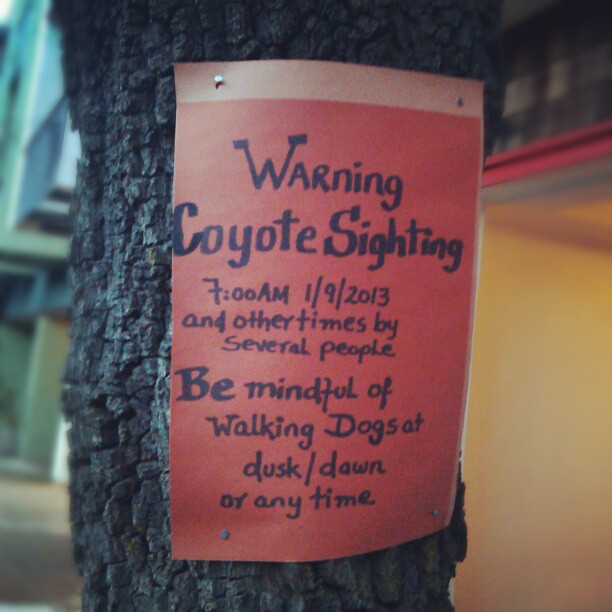 Warning
Coyote Sighting
7:00AM 1/9/2013
and other times by
Several people
Be mindful of
Walking Dogs at
dusk/dawn
or any time